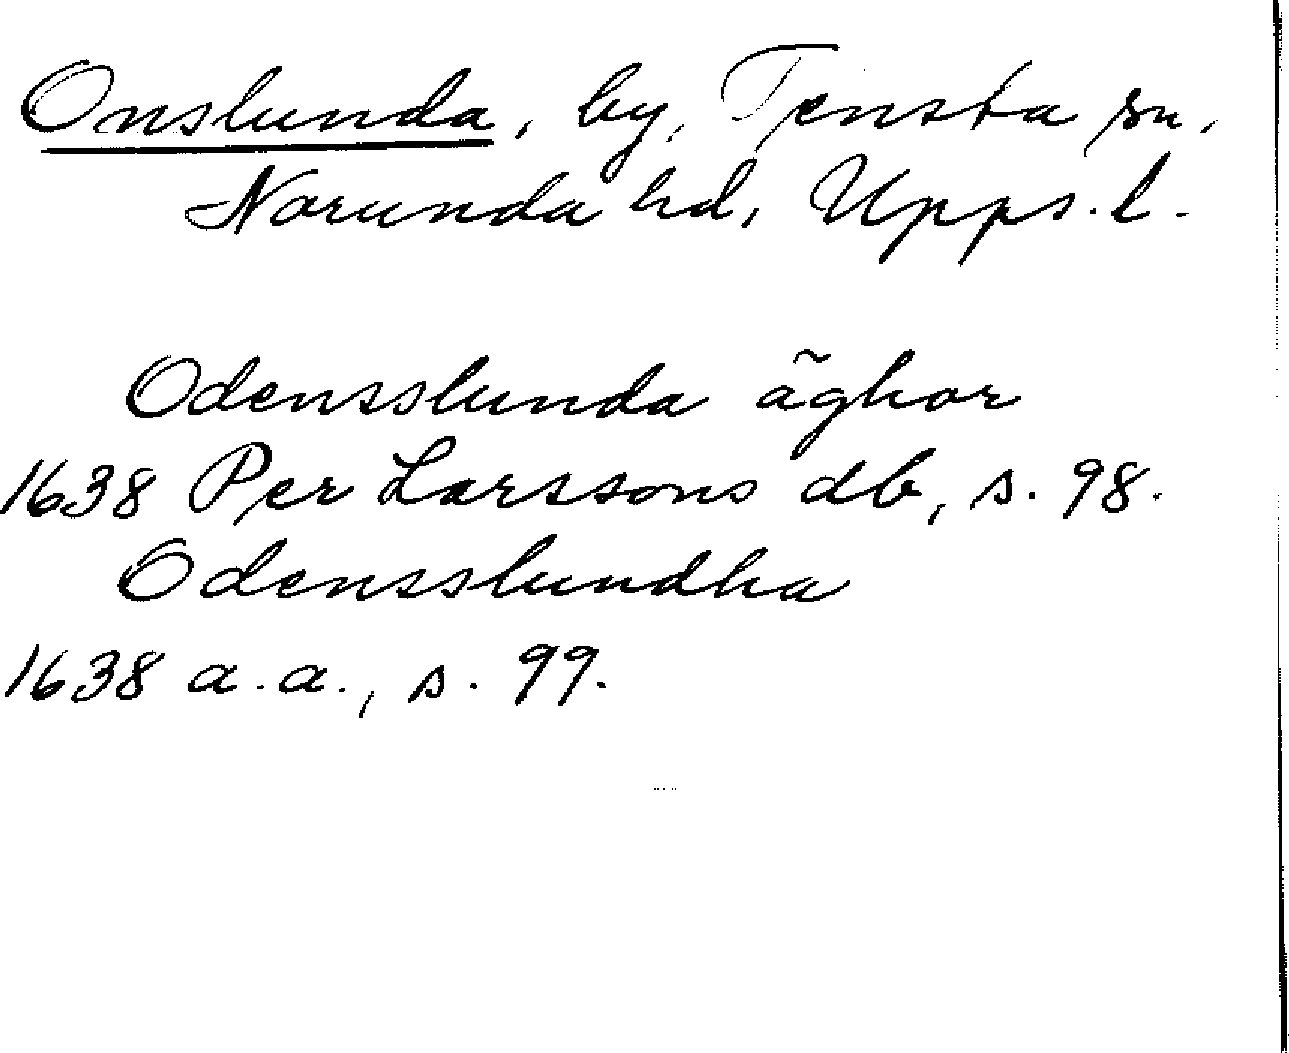 Onslunda, by, Tensta sn,
Norunda hd, Upps. l.
Odensslunda ãghor
1638 Per Larssons db, s. 98.
Odensslundha
1638 a.a., s. 99.